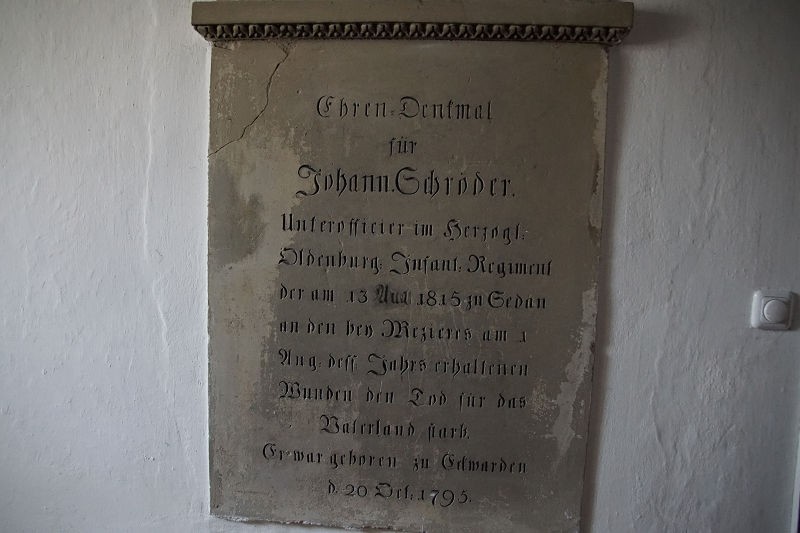 Ehren-Denkmal
für
Johann Schröder.
Unterofficier im Herzogl:
Oldenburg: Infant: Regiment
der am 13 Aug 1815 zu Sedan
an den bey Mezieres am 1
Aug: dess. Jahrs erhaltenen
Wunden den Tod für das
Vaterland starb.
Er war geboren zu Eckwarden
d. 20 Oct: 1795.